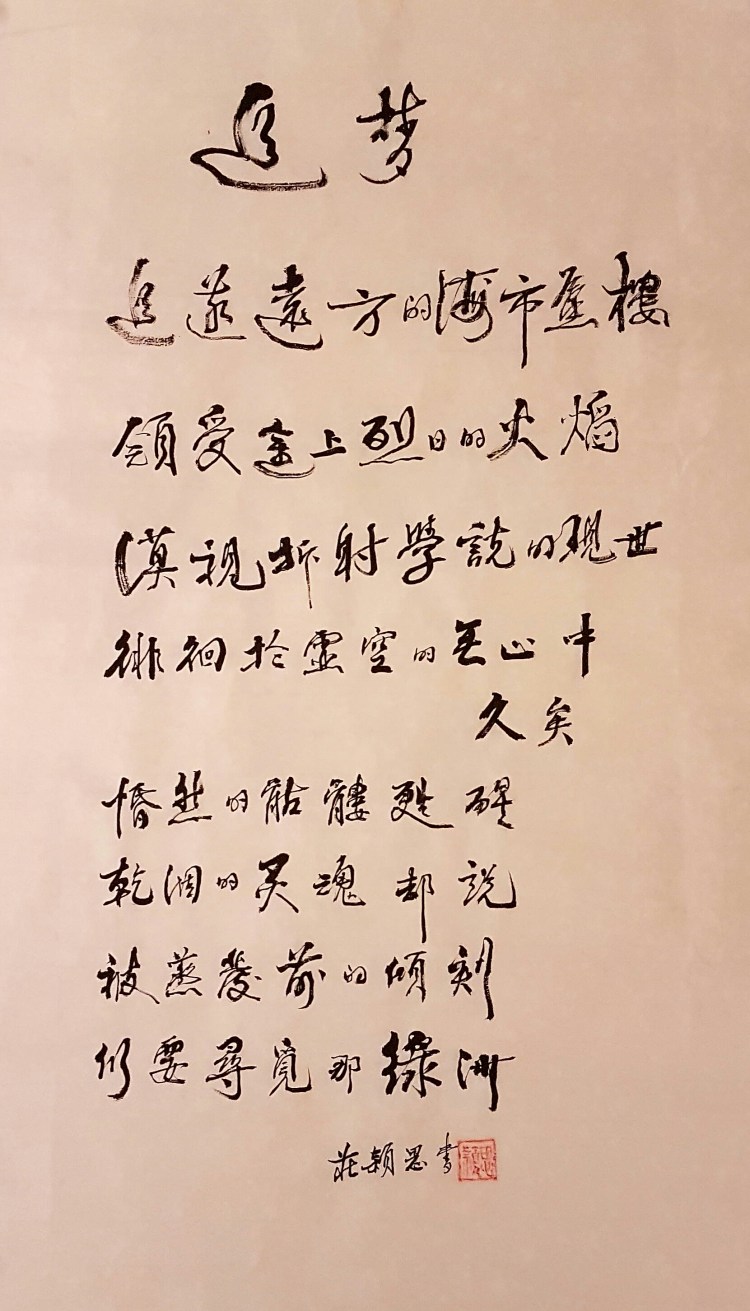 追梦
追逐遠方的海市蜃樓
領受途上烈日的火焰
漠視折射學說的現世
徘徊於靈空的無止中
久矣
惛然的骷髏甦醒
乾涸的灵魂却說
被蒸發前的傾刻
仍要尋覓那綠洲
莊穎思書